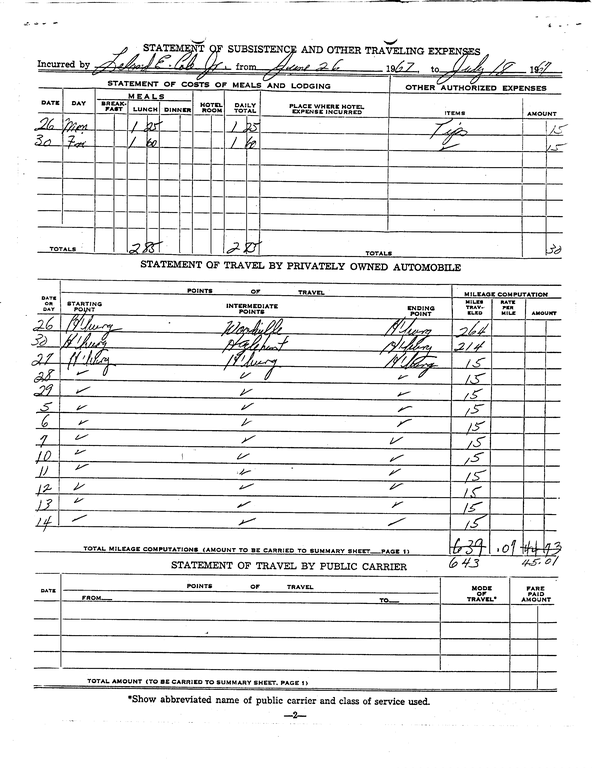 STATEMENT OF SUBSISTENCE AND OTHER TRAVELING EXPENSES
Incurred by E. Cole Jr. from June 26 1967, to July 18 1967
STATEMENT OF COSTS OF MEALS AND LODGING OTHER AUTHORIZED EXPENSES
MEALS
DATE DAY BREAK-FAST LUNCH DINNER HOTEL ROOM DAILY TOTAL PLACE WHERE HOTEL EXPENSE INCURRED ITEMS AMOUNT
26 Mon 1 25 1 25 Tips 15
30 1 60 1 60 ✓ 15
TOTALS 2 85 2 85 TOTALS 30
STATEMENT OF TRAVEL BY PRIVATELY OWNED AUTOMOBILE
POINTS OF TRAVEL MILEAGE COMPUTATION
DATE OR DAY STARTING POINT INTERMEDIATE POINTS ENDING POINT MILES TRAV-ELED RATE PER MILE AMOUNT
26 H'burg H'burg 264
30 H'burg H'burg 214
27 H'burg H'burg H'burg 15
28 ✓ ✓ ✓ 15
29 ✓ ✓ ✓ 15
5 ✓ ✓ ✓ 15
6 ✓ ✓ ✓ 15
7 ✓ ✓ ✓ 15
10 ✓ ✓ ✓ 15
11 ✓ ✓ ✓ 15
12 ✓ ✓ ✓ 15
13 ✓ ✓ ✓ 15
14 ✓ ✓ ✓ 15
TOTAL MILEAGE COMPUTATIONS (AMOUNT TO BE CARRIED TO SUMMARY SHEET PAGE 1) 639 .07 44 73
STATEMENT OF TRAVEL BY PUBLIC CARRIER 643 45.01
DATE POINTS OF TRAVEL MODE OF TRAVEL* FARE PAID AMOUNT
FROM TO
TOTAL AMOUNT (TO BE CARRIED TO SUMMARY SHEET, PAGE 1)
*Show abbreviated name of public carrier and class of service used.
—2—